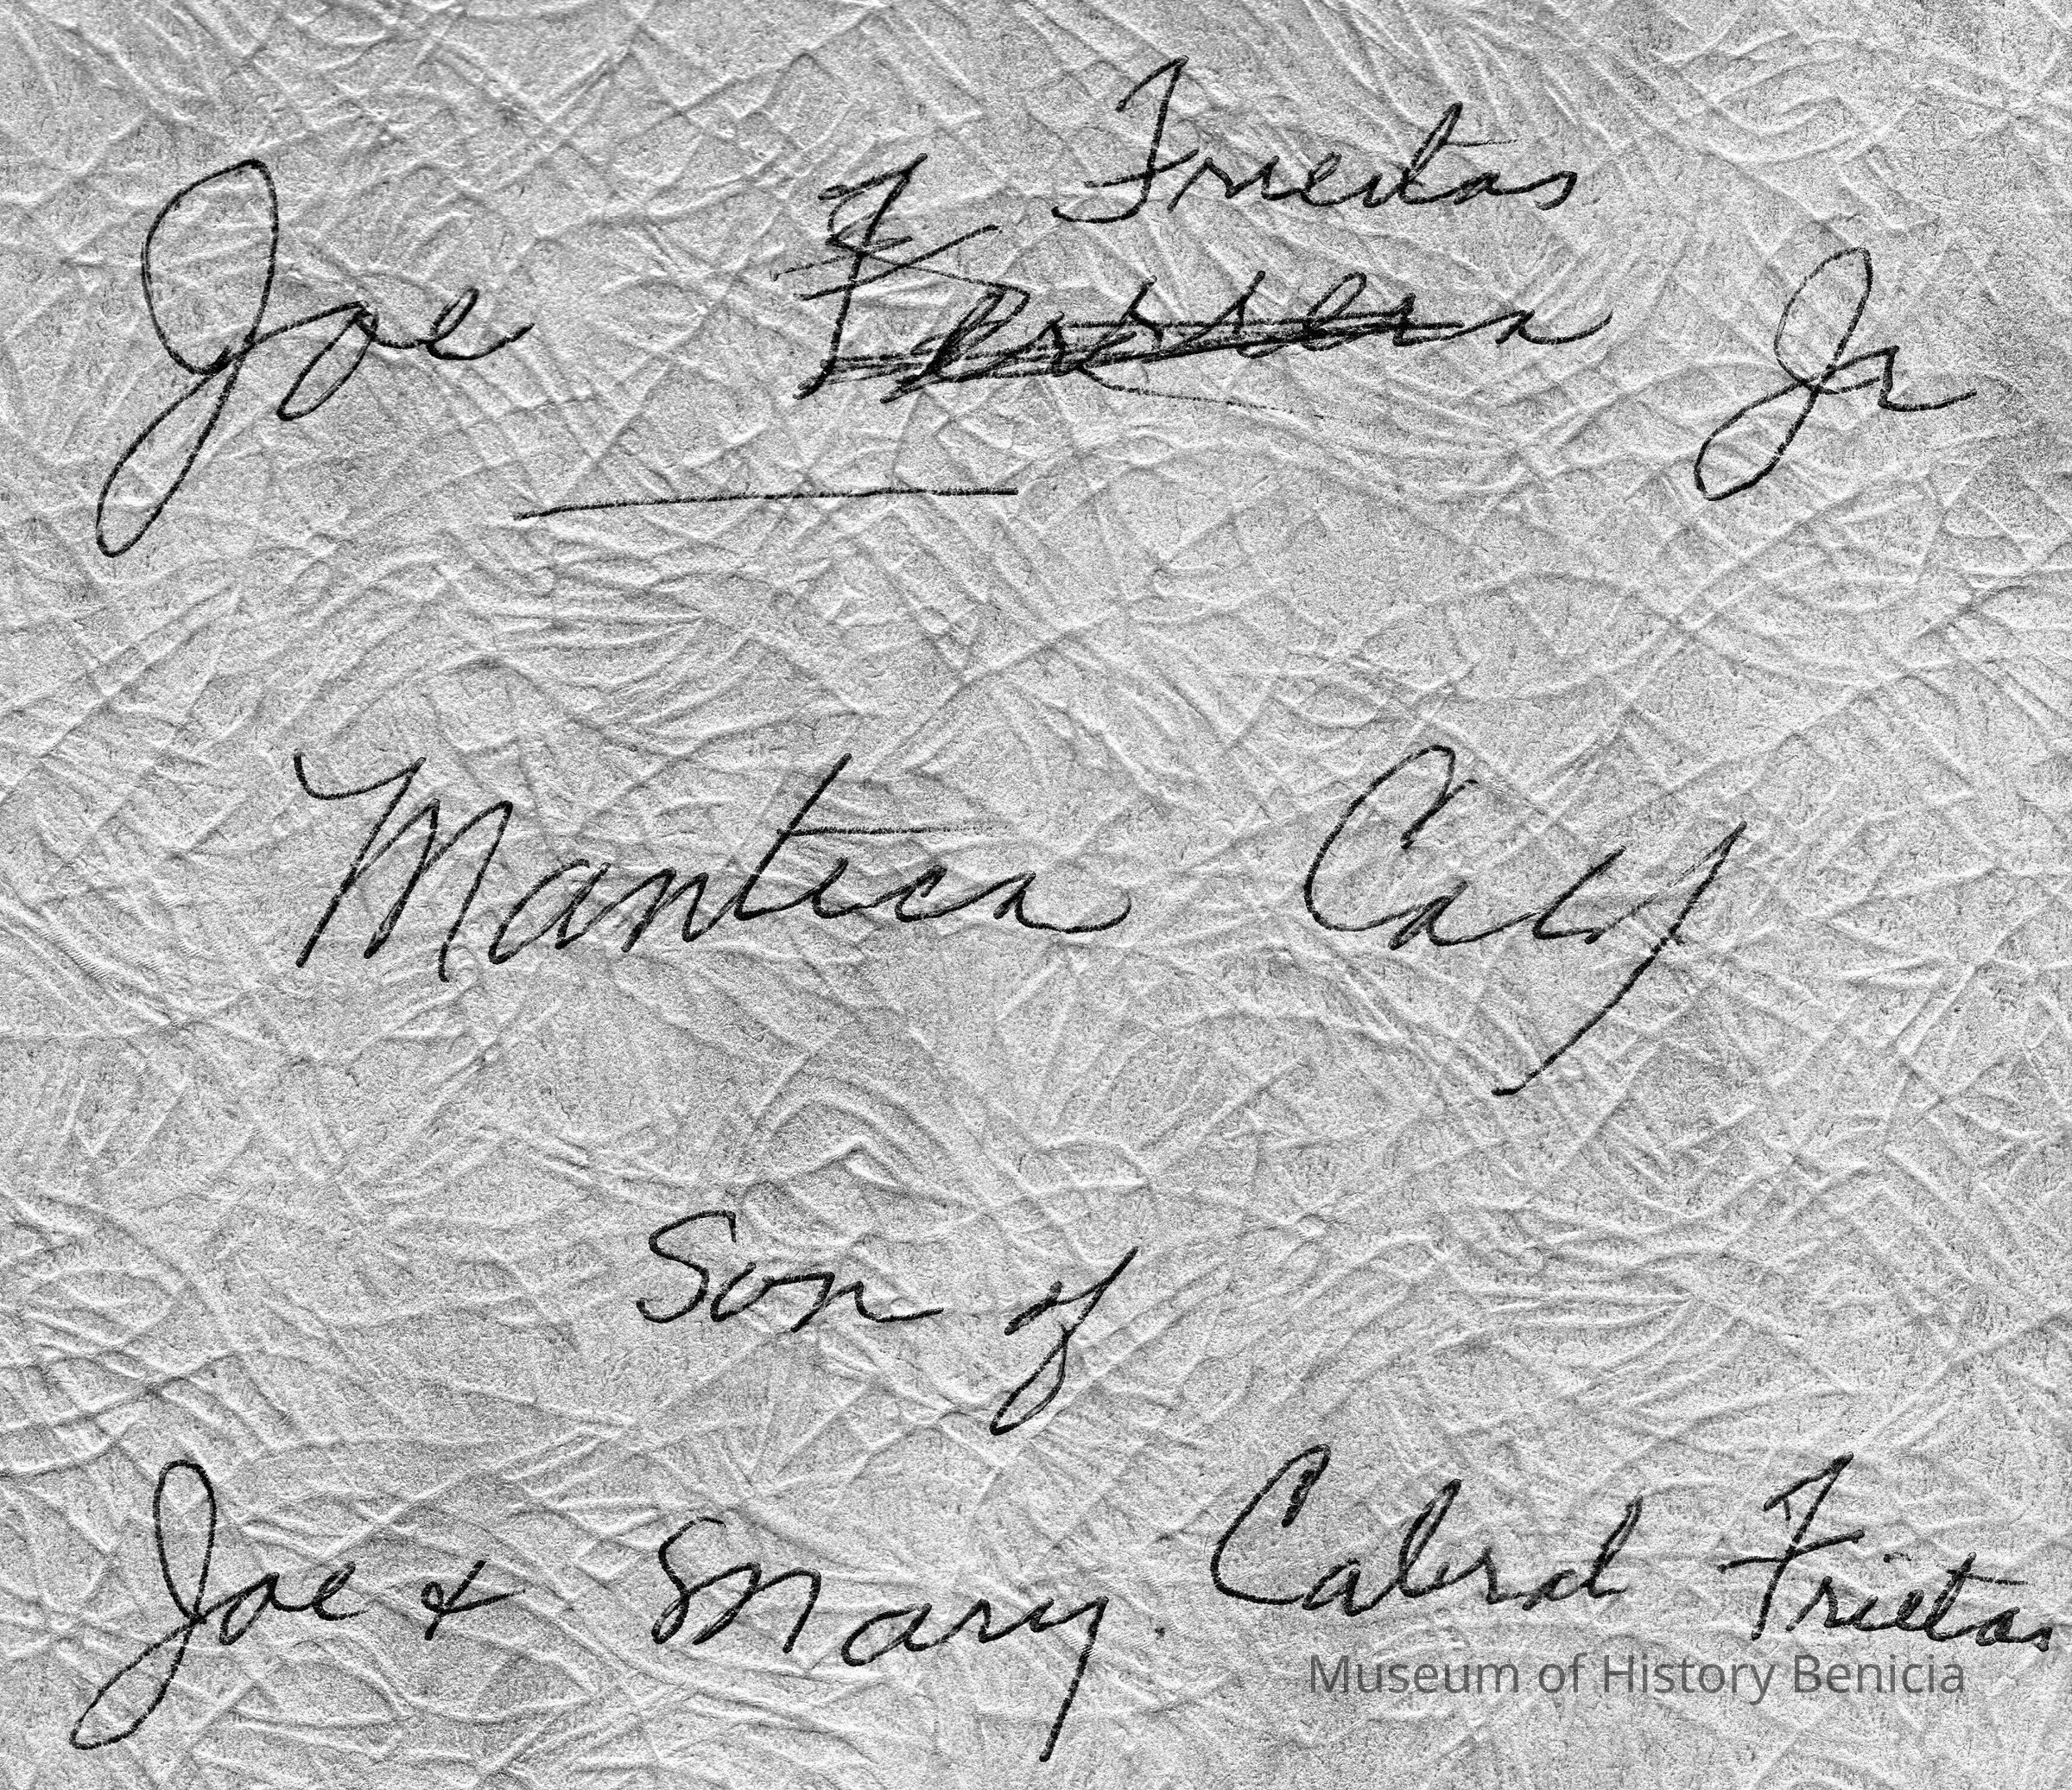 Frieitas
Joe Jr
Mantica Calif
Son of
Joe & Mary. Cabral Frietas
Museum of History Benicia